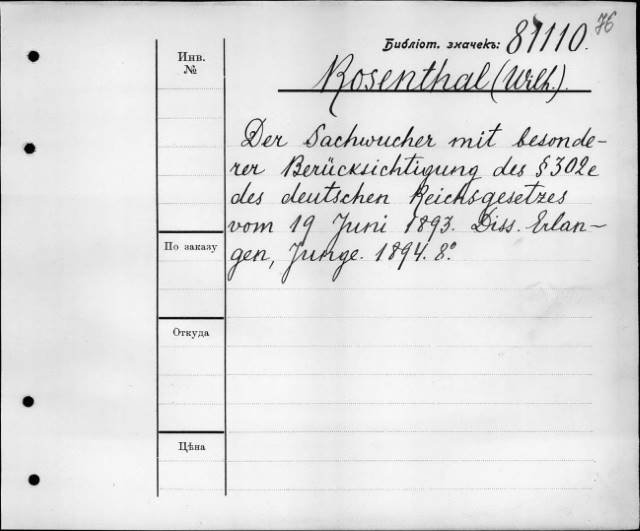 76
Библіот. значекъ: 87110.
Rosenthal (Wilh.).
Инв.
№
Der Sachwucher mit besonde-
rer Berücksichtigung des § 302e
des deutschen Reichsgesetzes
vom 19 Juni 1893. Diss. Erlan-
gen, Junge. 1894. 8°
По заказу
Откуда
Цѣна